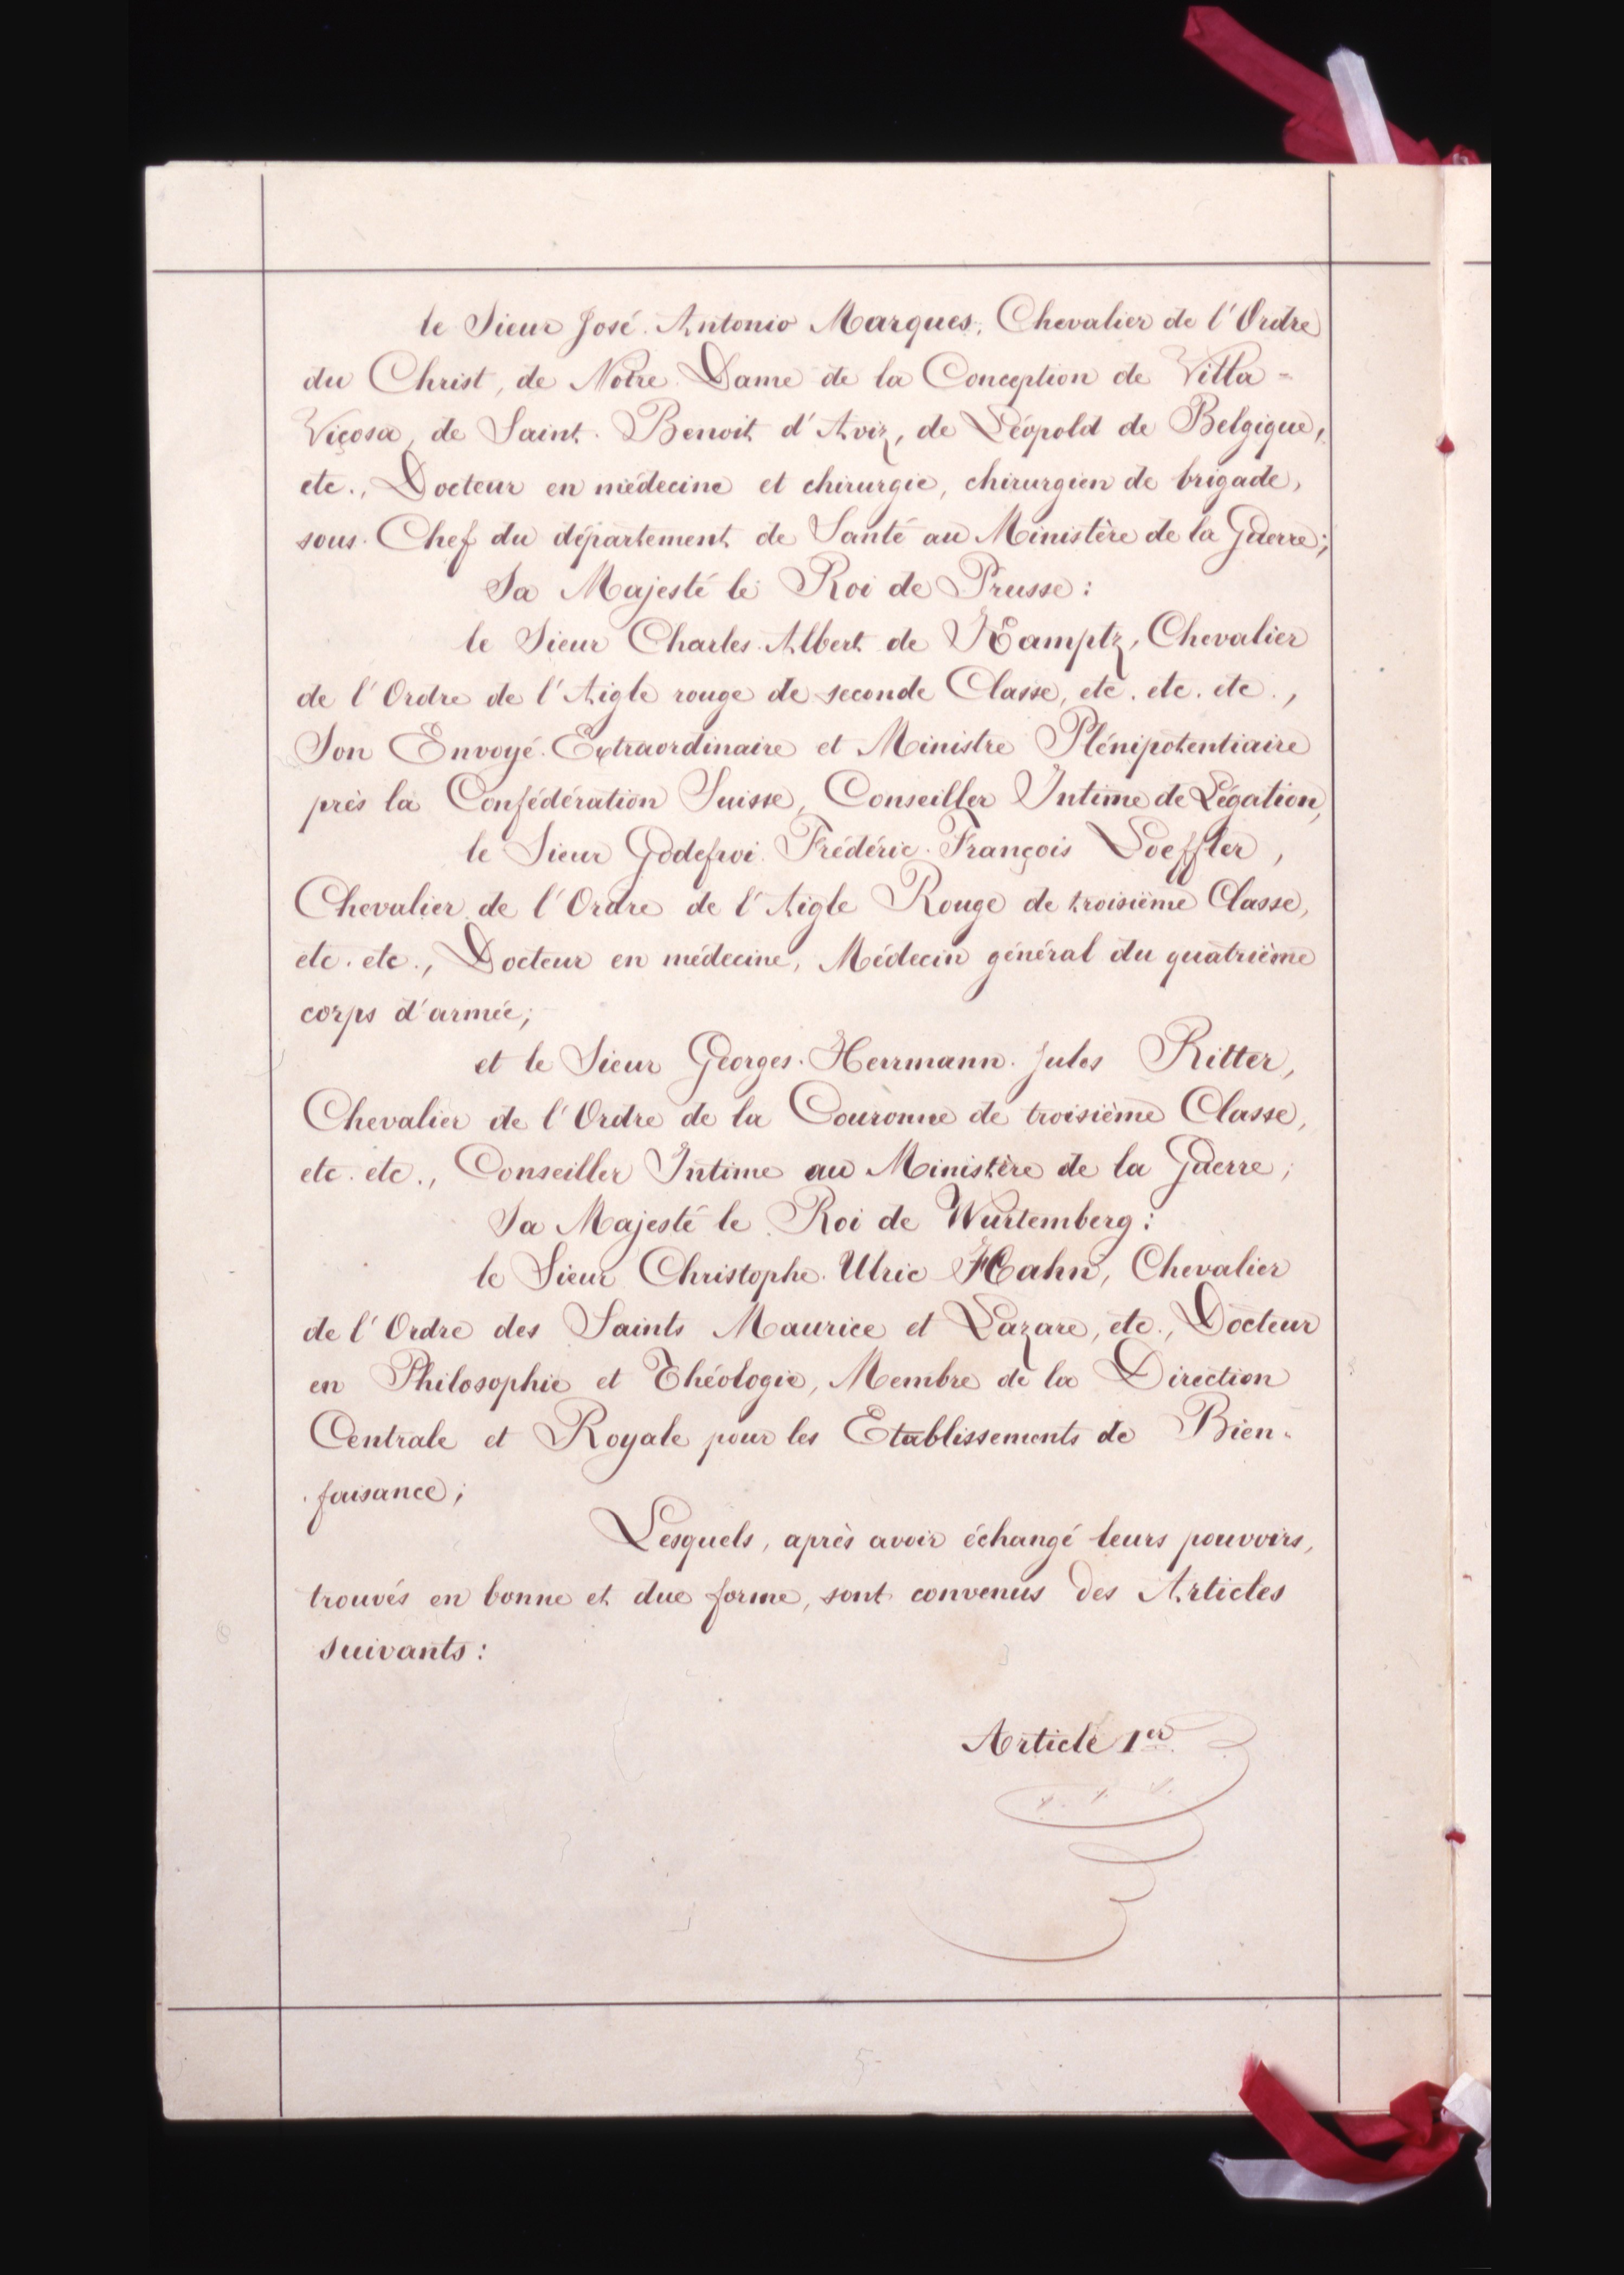 le Sieur José-Antonio Marques, Chevalier de l'Ordre
du Christ, de Notre Dame de la Conception de Villa-
Viçosa, de Saint-Benoit d'Aviz, de Léopold de Belgique,
etc., Docteur en médecine et chirurgie, chirurgien de brigade,
sous-Chef du département de Santé au Ministère de la Guerre;
Sa Majesté le Roi de Prusse:
le Sieur Charles-Albert de Kamptz, Chevalier
de l'Ordre de l'Aigle rouge de seconde Classe, etc. etc. etc.,
Son Envoyé Extraordinaire et Ministre Plénipotentiaire
près la Confédération Suisse, Conseiller Intime de Légation,
le Sieur Godefroi-Frédéric-François Loeffler,
Chevalier de l'Ordre de l'Aigle Rouge de troisième Classe,
etc. etc., Docteur en médecine, Médecin général du quatrième
corps d'armée;
et le Sieur Georges-Herrmann-Jules Ritter,
Chevalier de l'Ordre de la Couronne de troisième Classe,
etc. etc., Conseiller Intime au Ministère de la Guerre;
Sa Majesté le Roi de Wurtemberg:
le Sieur Christophe-Ulric Hahn, Chevalier
de l'Ordre des Saints Maurice et Lazare, etc., Docteur
en Philosophie et Théologie, Membre de la Direction
Centrale et Royale pour les Etablissements de Bien-
-faisance;
Lesquels, après avoir échangé leurs pouvoirs,
trouvés en bonne et due forme, sont convenus des Articles
suivants:
Article 1er.
5